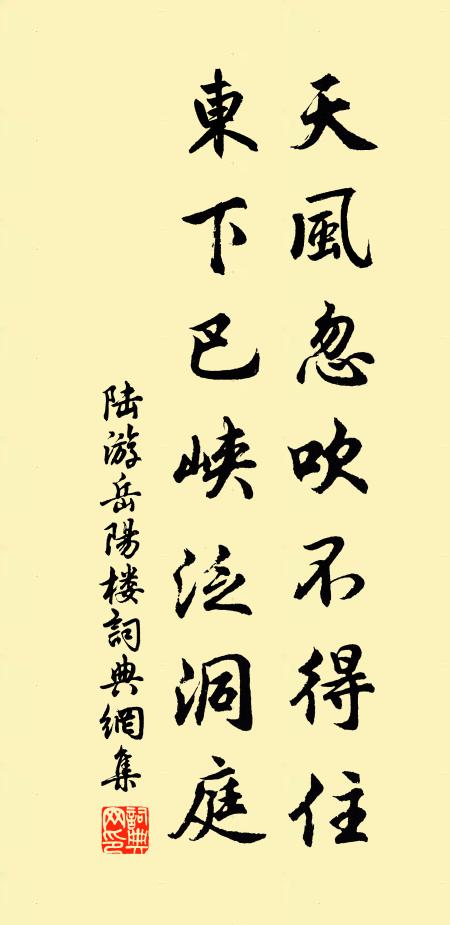 天風忽吹不得住
東下巴峡泛洞庭
陆游岳陽楼詞典網集
詞典网印